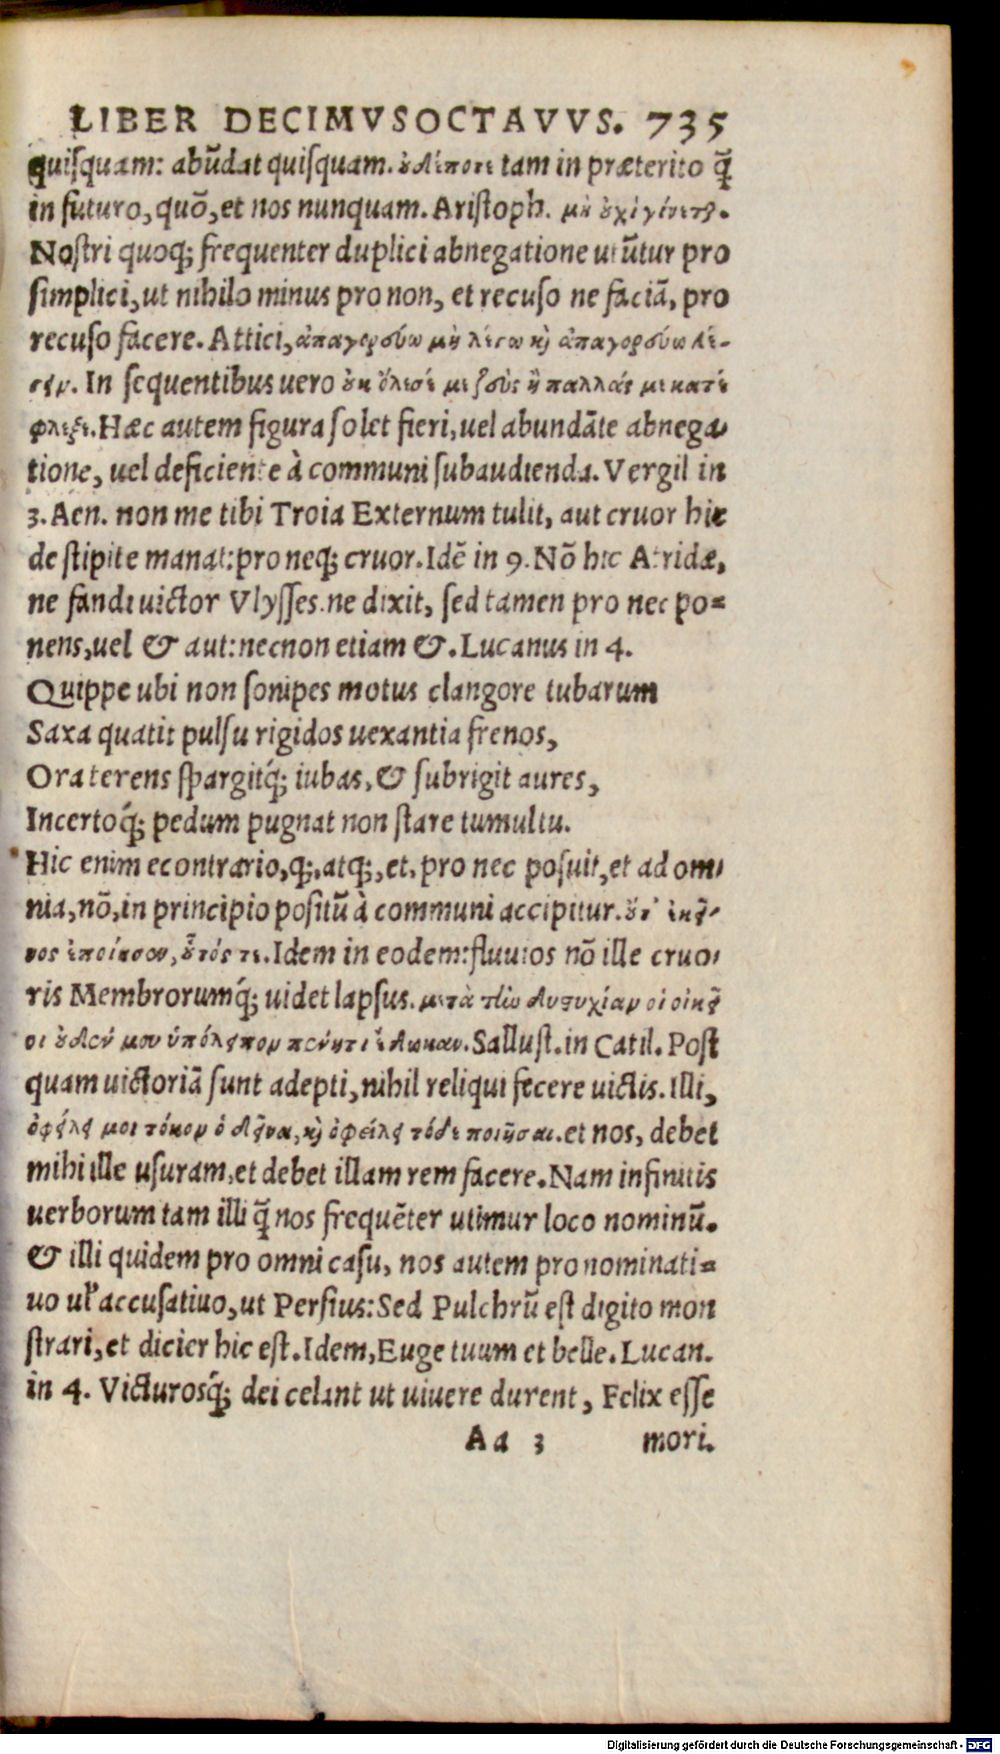 LIBER DECIMVSOCTAVVS. 735
quiſquam: abūdat quiſquam. ȣδέποτε tam in præterito q̃
in futuro, quō, et nos nunquam. Ariſtoph. μὴ ȣχὶ γένετ.
Noſtri quoq; frequenter duplici abnegatione utūtur pro
ſimplici, ut nihilo minus pro non, et recuſo ne faciā, pro
recuſo facere. Attici, ἀπαγορεύω μὴ λέγω κὶ ἀπαγορεύω λέ-
γειν. In ſequentibus uero ȣκ ὄλεσέ με ζεὺς ἢ παλλάς με κατέ
φλεξε. Hæc autem figura ſolet fieri, uel abundāte abnega-
tione, uel deficiente à communi ſubaudienda. Vergil in
3. Aen. non me tibi Troia Externum tulit, aut cruor hic
de ſtipite manat: pro neq; cruor. Idē in 9. Nō hic Atridæ,
ne fandi uictor Vlyſſes. ne dixit, ſed tamen pro nec po=
nens, uel & aut: necnon etiam &. Lucanus in 4.
Quippe ubi non ſonipes motus clangore tubarum
Saxa quatit pulſu rigidos uexantia frenos,
Ora terens ſpargitq́; iubas, & ſubrigit aures,
Incertoq́; pedum pugnat non ſtare tumultu.
Hic enim econtrario, q;, atq;, et, pro nec poſuit, et ad om-
nia, nō, in principio poſitū à communi accipitur. ȣτ' ἐκεῖ-
νος ἐποίησεν, ȣτός τε. Idem in eodem: fluuios nō ille cruo-
ris Membrorumq́; uidet lapſus. μετὰ τὴν δυστυχίαν οἱ οἰκεῖ
οι ȣδέν μου ὑπόλειπον πένητι ἔδωκαν. Salluſt. in Catil. Poſt
quam uictoriā ſunt adepti, nihil reliqui fecere uictis. Illi,
ὀφείλει μοι τόκον ὁ δεῖνα, κὶ ὀφείλει τόδε ποιῆσαι. et nos, debet
mihi ille uſuram, et debet illam rem facere. Nam infinitis
uerborum tam illi q̃ nos frequēter utimur loco nominū.
& illi quidem pro omni caſu, nos autem pro nominati=
uo ul' accuſatiuo, ut Perſius: Sed Pulchrū eſt digito mon
ſtrari, et dicier hic eſt. Idem, Euge tuum et belle. Lucan.
in 4. Victurosq́; dei celant ut uiuere durent, Felix eſſe
Aa 3 mori.
Digitalisierung gefördert durch die Deutsche Forschungsgemeinschaft - DFG